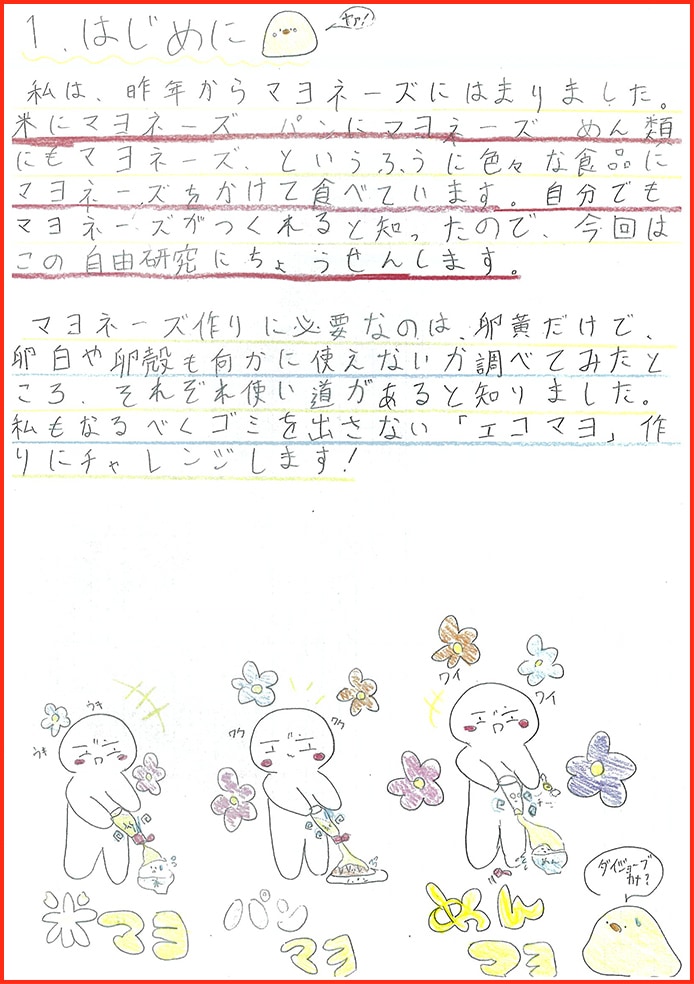 1.はじめに
ヤァ!
私は、昨年からマヨネーズにはまりました。
米にマヨネーズ パンにマヨネーズ めん類
にもマヨネーズ、というふうに色々な食品に
マヨネーズをかけて食べています。自分でも
マヨネーズがつくれると知ったので、今回は
この自由研究にちょうせんします。
マヨネーズ作りに必要なのは、卵黄だけで、
卵白や卵殻も何かに使えないか調べてみたと
ころ、それぞれ使い道があると知りました。
私もなるべくゴミを出さない「エコマヨ」作
りにチャレンジします!
ウキ
ウキ
米
米マヨ
ワク
ワク
パン
パンマヨ
ワイ
ワイ
めん
めんマヨ
ダイジョーブカナ?